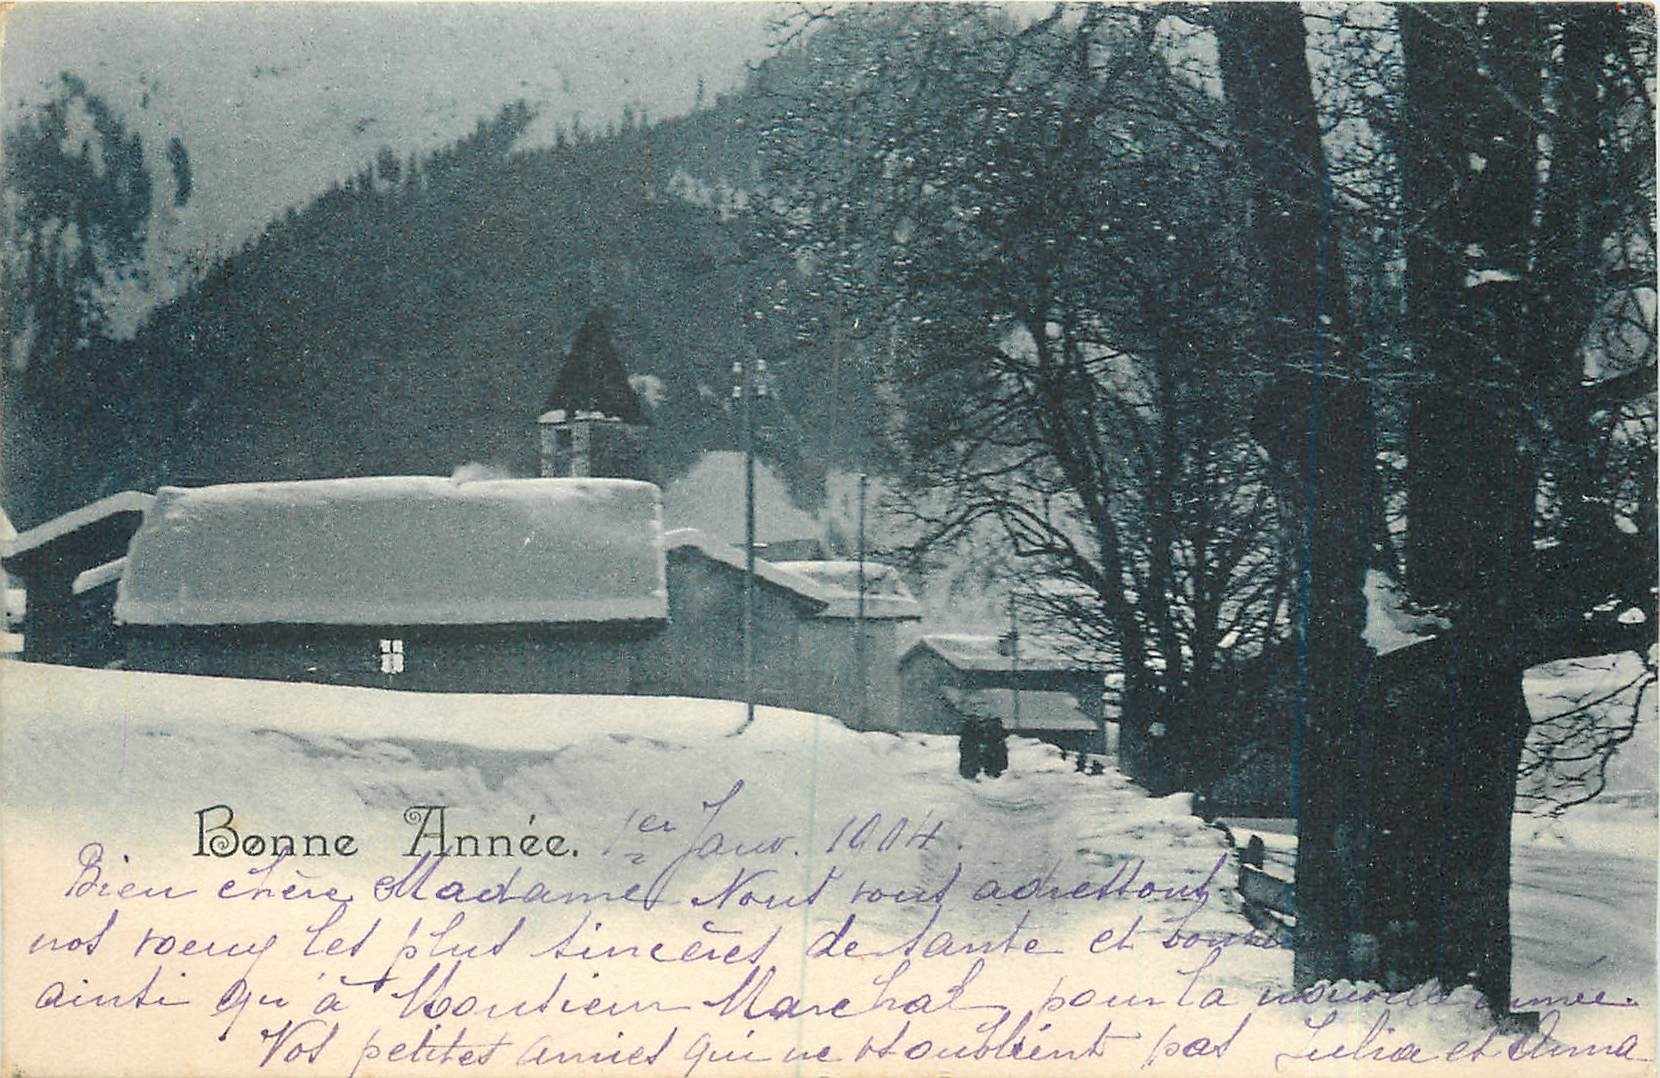 Bonne Année. 1er Janv. 1904.
Bien chère Madame Nous vous adressons
nos voeux les plus sincères de sante et bonheur
ainsi qu'à Monsieur Marchal pour la nouvelle année.
Vos petites amies qui ne vs oublient pas Julia et Anna